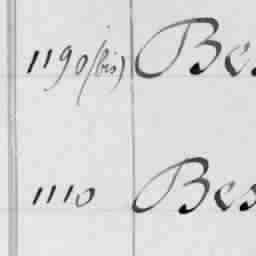 1190 (bis) Bes
1110 Bes